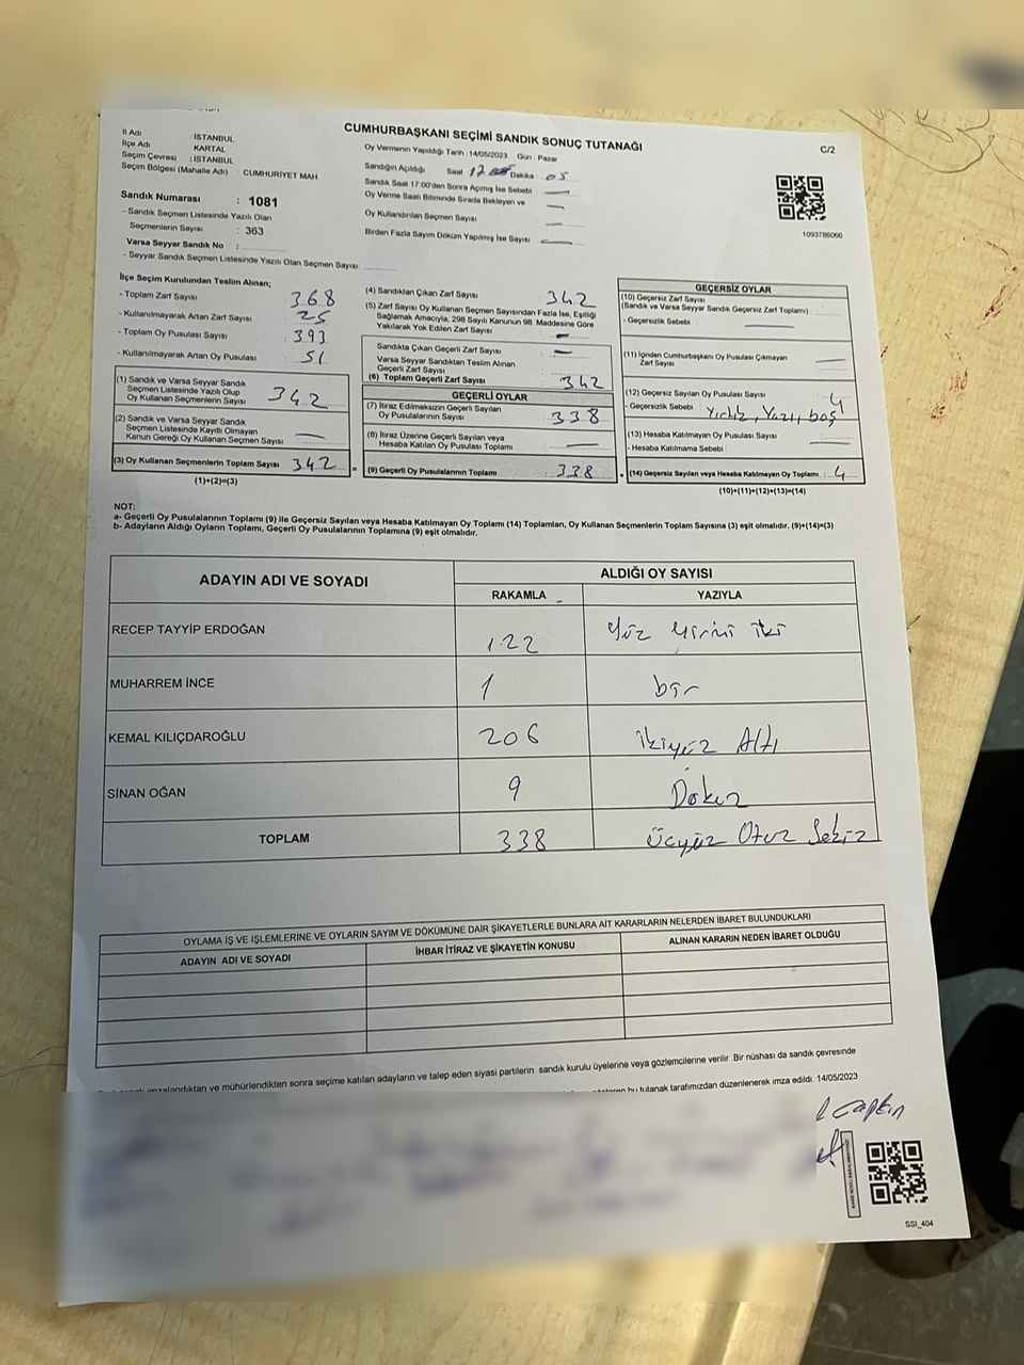 CUMHURBAŞKANI SEÇİMİ SANDIK SONUÇ TUTANAĞI
C/2
İl Adı : İSTANBUL
İlçe Adı : KARTAL
Seçim Çevresi : İSTANBUL
Seçim Bölgesi (Mahalle Adı) CUMHURİYET MAH
Sandık Numarası : 1081
- Sandık Seçmen Listesinde Yazılı Olan
Seçmenlerin Sayısı : 363
Varsa Seyyar Sandık No :
- Seyyar Sandık Seçmen Listesinde Yazılı Olan Seçmen Sayısı
Oy Vermenin Yapıldığı Tarih : 14/05/2023 Gün : Pazar
Sandığın Açıldığı Saat 17 Dakika 05
Sandık Saat 17:00'den Sonra Açmış İse Sebebi —
Oy Verme Saati Bitiminde Sırada Bekleyen ve —
Oy Kullandırılan Seçmen Sayısı —
Birden Fazla Sayım Döküm Yapılmış İse Sayısı —
1093786066
İlçe Seçim Kurulundan Teslim Alınan;
- Toplam Zarf Sayısı 368
- Kullanılmayarak Artan Zarf Sayısı 25
- Toplam Oy Pusulası Sayısı 393
- Kullanılmayarak Artan Oy Pusulası 51
(1) Sandık ve Varsa Seyyar Sandık
Seçmen Listesinde Yazılı Olup
Oy Kullanan Seçmenlerin Sayısı 342
(2) Sandık ve Varsa Seyyar Sandık
Seçmen Listesinde Kayıtlı Olmayan
Kanun Gereği Oy Kullanan Seçmen Sayısı —
(3) Oy Kullanan Seçmenlerin Toplam Sayısı 342
(1)+(2)=(3)
(4) Sandıktan Çıkan Zarf Sayısı 342
(5) Zarf Sayısı Oy Kullanan Seçmen Sayısından Fazla İse, Eşitliği
Sağlamak Amacıyla, 298 Sayılı Kanunun 98. Maddesine Göre
Yakılarak Yok Edilen Zarf Sayısı —
Sandıkta Çıkan Geçerli Zarf Sayısı —
Varsa Seyyar Sandıktan Teslim Alınan
Geçerli Zarf Sayısı
(6) Toplam Geçerli Zarf Sayısı 342
GEÇERLİ OYLAR
(7) İtiraz Edilmeksizin Geçerli Sayılan
Oy Pusulalarının Sayısı 338
(8) İtiraz Üzerine Geçerli Sayılan veya
Hesaba Katılan Oy Pusulası Toplamı —
= (9) Geçerli Oy Pusulalarının Toplamı : 338
GEÇERSİZ OYLAR
(10) Geçersiz Zarf Sayısı
(Sandık ve Varsa Seyyar Sandık Geçersiz Zarf Toplamı)
- Geçersizlik Sebebi —
(11) İçinden Cumhurbaşkanı Oy Pusulası Çıkmayan
Zarf Sayısı —
(12) Geçersiz Sayılan Oy Pusulası Sayısı 4
- Geçersizlik Sebebi Yırtık, Yazı, boş
(13) Hesaba Katılmayan Oy Pusulası Sayısı —
- Hesaba Katılmama Sebebi
+ (14) Geçersiz Sayılan veya Hesaba Katılmayan Oy Toplamı : 4
(10)+(11)+(12)+(13)=(14)
NOT:
a- Geçerli Oy Pusulalarının Toplamı (9) ile Geçersiz Sayılan veya Hesaba Katılmayan Oy Toplamı (14) Toplamları, Oy Kullanan Seçmenlerin Toplam Sayısına (3) eşit olmalıdır. (9)+(14)=(3)
b- Adayların Aldığı Oyların Toplamı, Geçerli Oy Pusulalarının Toplamına (9) eşit olmalıdır.
ADAYIN ADI VE SOYADI
ALDIĞI OY SAYISI
RAKAMLA YAZIYLA
RECEP TAYYİP ERDOĞAN 122 Yüz Yirmi iki
MUHARREM İNCE 1 bir
KEMAL KILIÇDAROĞLU 206 ikiyüz Altı
SİNAN OĞAN 9 Dokuz
TOPLAM 338 Üçyüz Otuz Sekiz
OYLAMA İŞ VE İŞLEMLERİNE VE OYLARIN SAYIM VE DÖKÜMÜNE DAİR ŞİKAYETLERLE BUNLARA AİT KARARLARIN NELERDEN İBARET BULUNDUKLARI
ADAYIN ADI VE SOYADI İHBAR İTİRAZ VE ŞİKAYETİN KONUSU ALINAN KARARIN NEDEN İBARET OLDUĞU
ve mühürlendikten sonra seçime katılan adayların ve talep eden siyasi partilerin sandık kurulu üyelerine veya gözlemcilerine verilir. Bir nüshası da sandık çevresinde
bu tutanak tarafımızdan düzenlenerek imza edildi. 14/05/2023
SSI_404